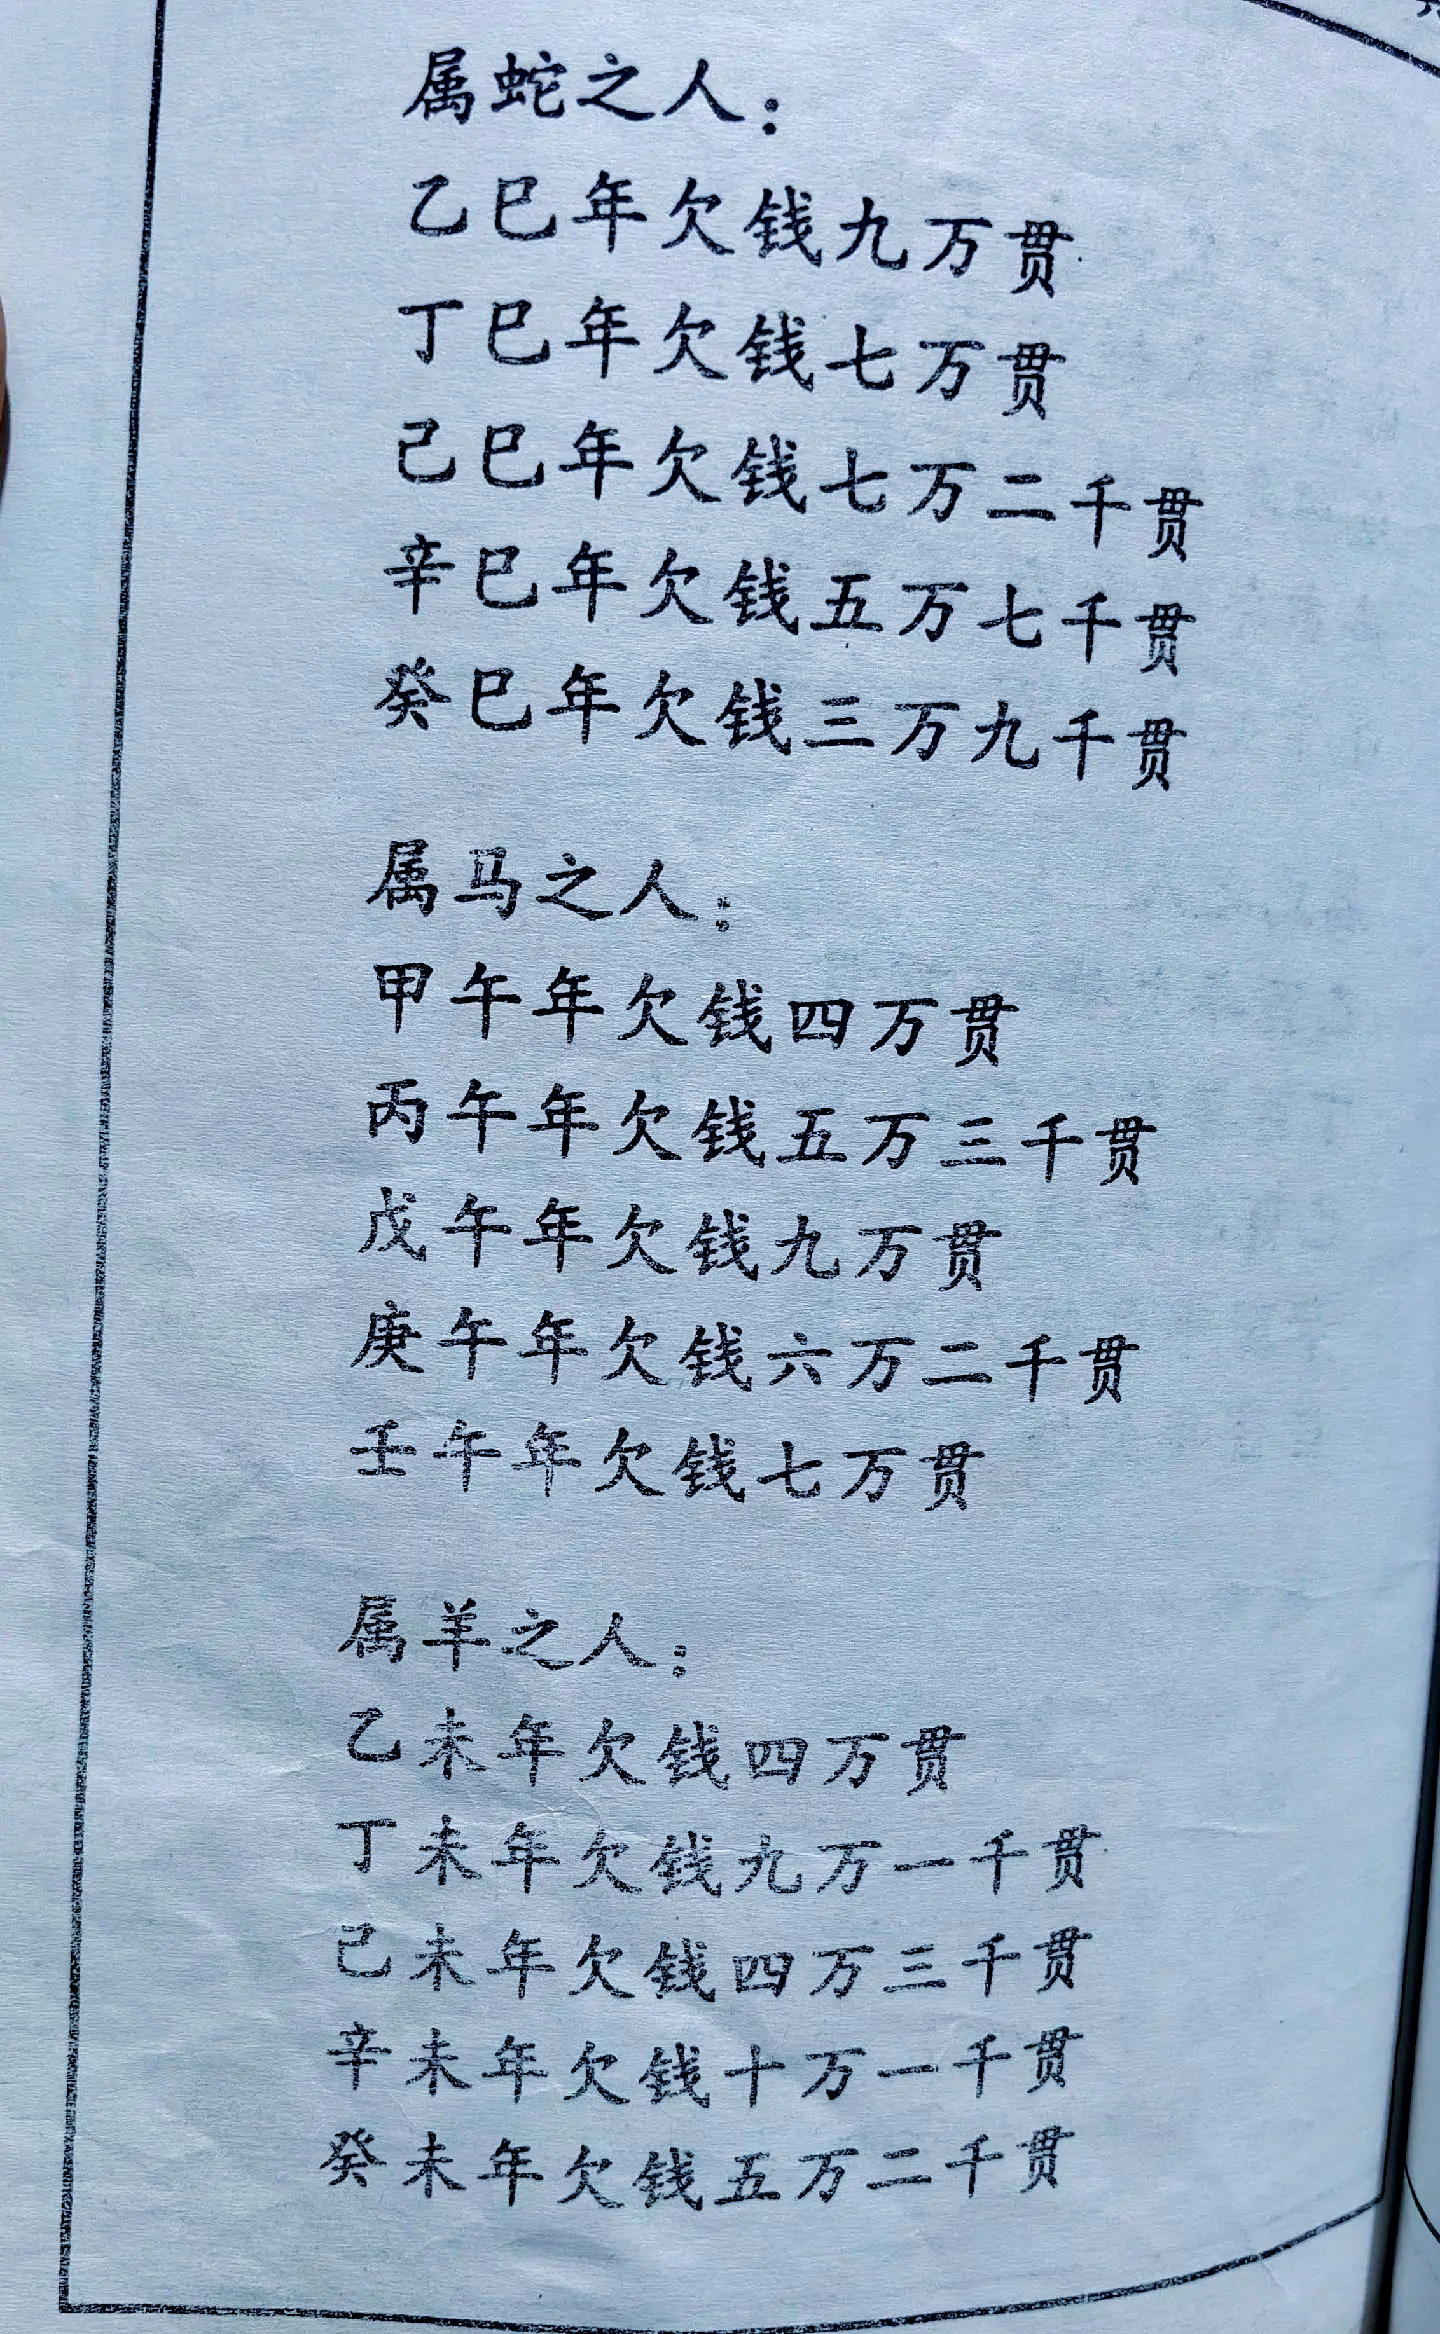 属蛇之人：
乙巳年欠钱九万贯
丁巳年欠钱七万贯
己巳年欠钱七万二千贯
辛巳年欠钱五万七千贯
癸巳年欠钱三万九千贯
属马之人：
甲午年欠钱四万贯
丙午年欠钱五万三千贯
戊午年欠钱九万贯
庚午年欠钱六万二千贯
壬午年欠钱七万贯
属羊之人：
乙未年欠钱四万贯
丁未年欠钱九万一千贯
己未年欠钱四万三千贯
辛未年欠钱十万一千贯
癸未年欠钱五万二千贯